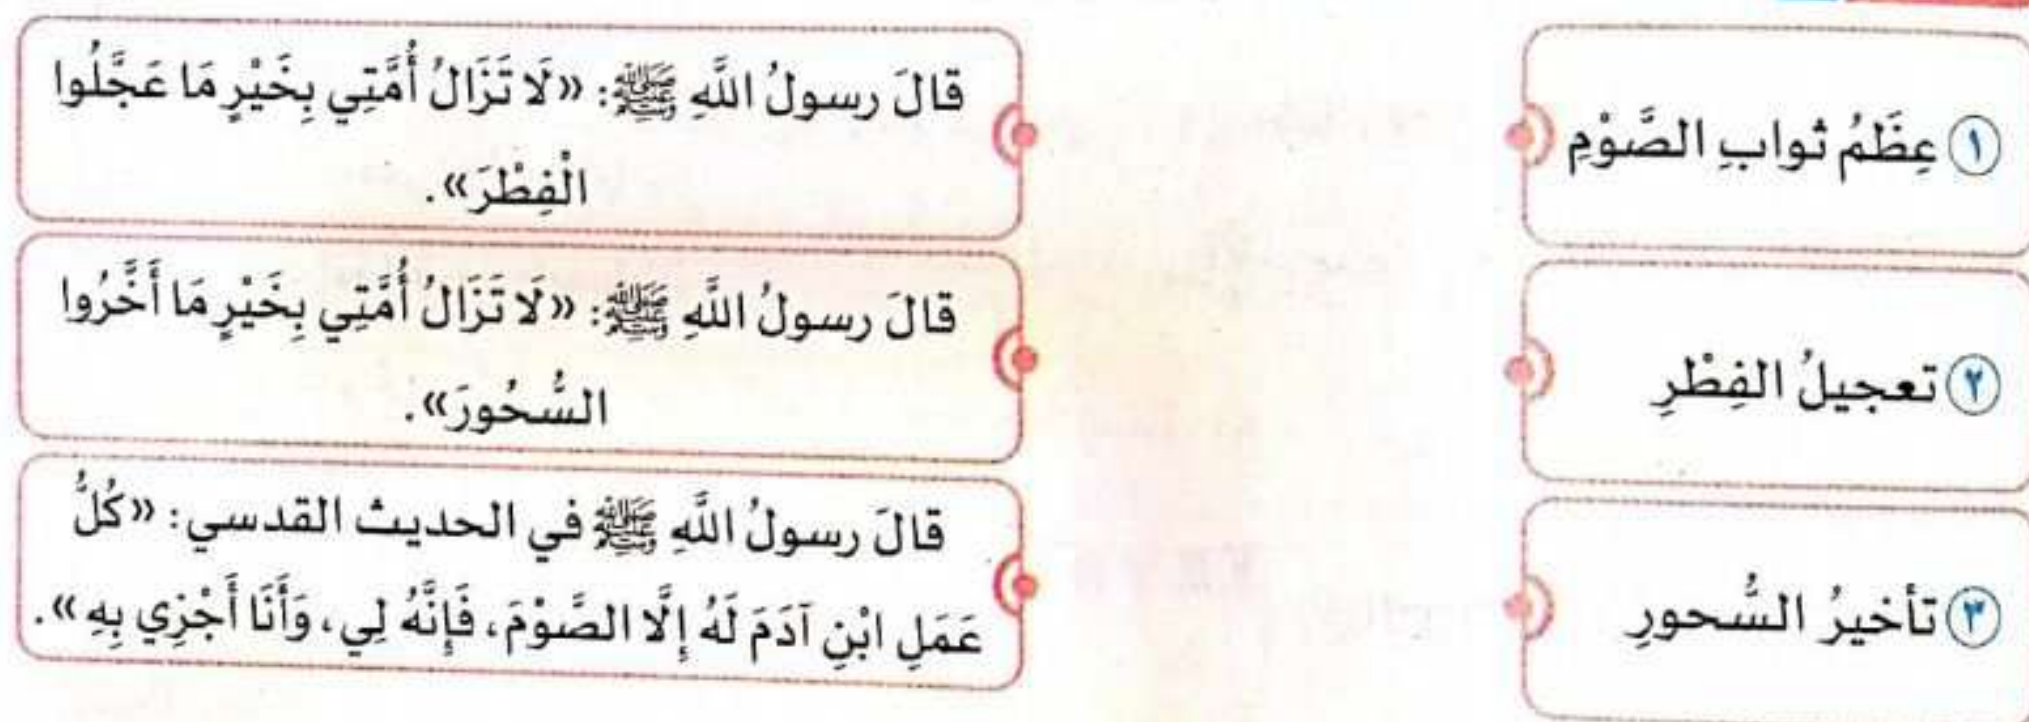 ① عِظَمُ ثوابِ الصَّوْمِ
② تعجيلُ الفِطْرِ
③ تأخيرُ السُّحورِ
قالَ رسولُ اللَّهِ ﷺ: «لَا تَزَالُ أُمَّتِي بِخَيْرٍ مَا عَجَّلُوا
الْفِطْرَ».
قالَ رسولُ اللَّهِ ﷺ: «لَا تَزَالُ أُمَّتِي بِخَيْرٍ مَا أَخَّرُوا
السُّحُورَ».
قالَ رسولُ اللَّهِ ﷺ في الحديث القدسي: «كُلُّ
عَمَلِ ابْنِ آدَمَ لَهُ إِلَّا الصَّوْمَ، فَإِنَّهُ لِي، وَأَنَا أَجْزِي بِهِ».